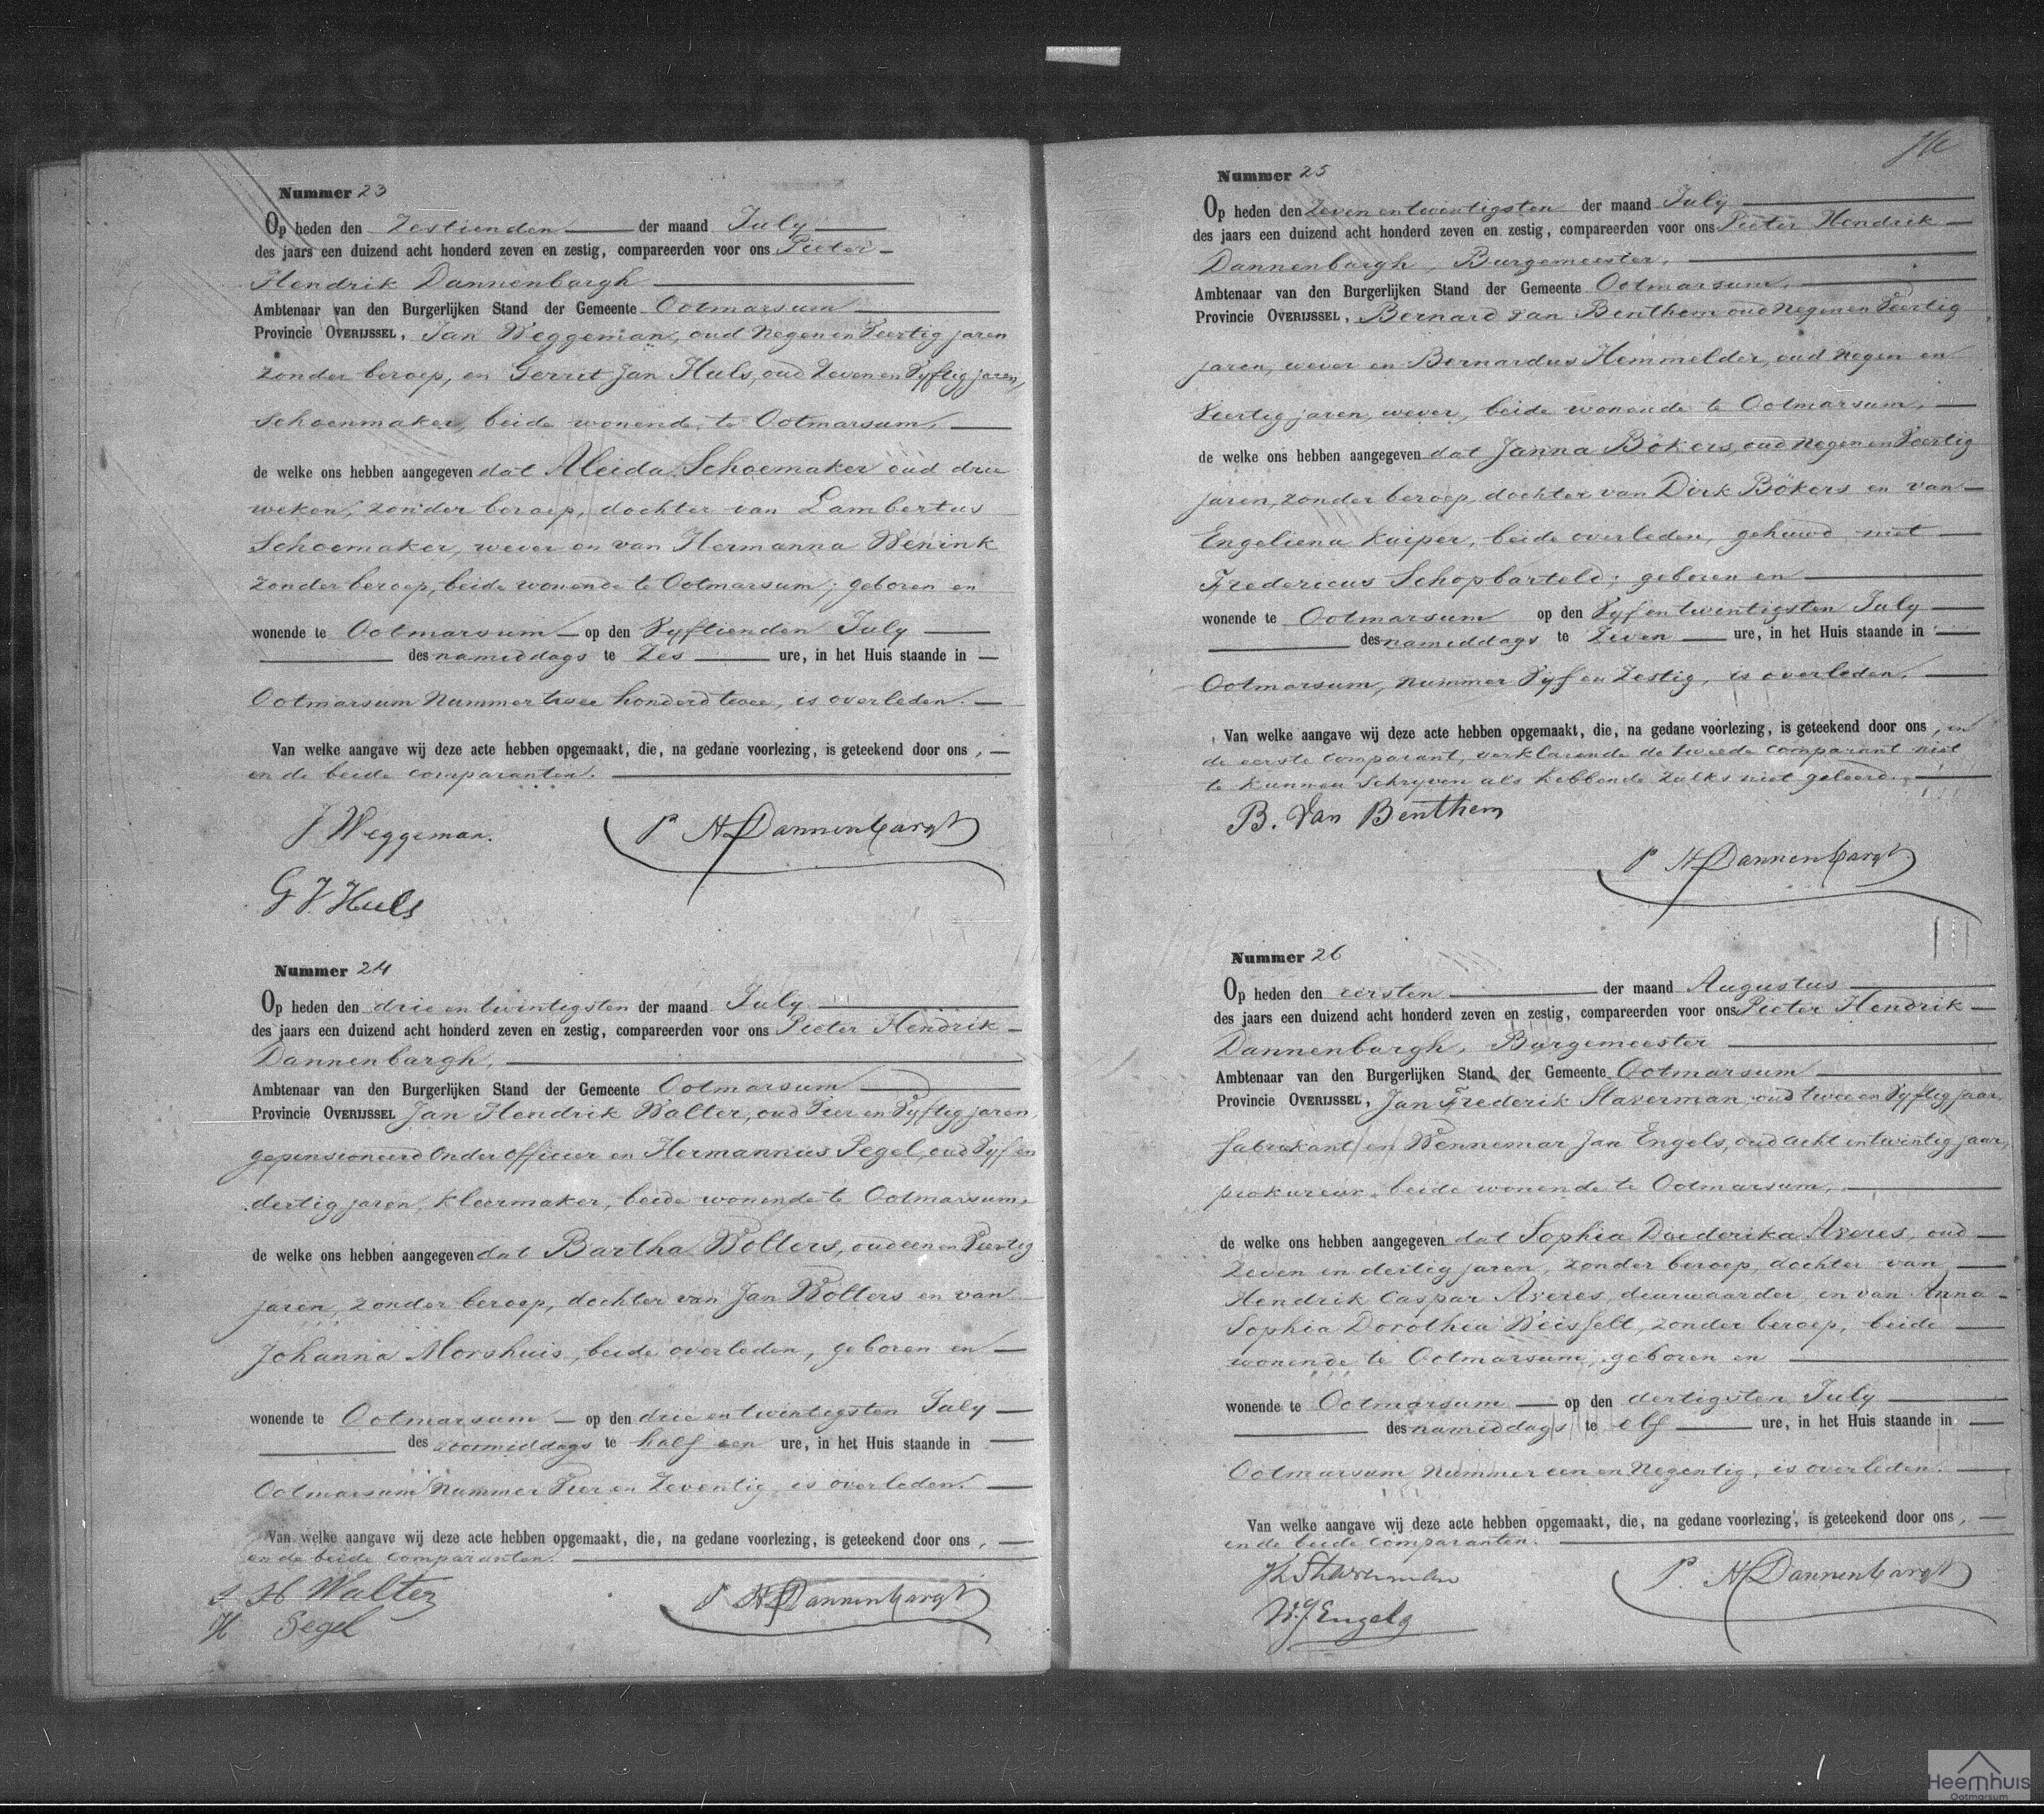 Nummer 23
Op heden den Zestienden der maand July
des jaars een duizend acht honderd zeven en zestig, compareerden voor ons Pieter
Hendrik Dannenbargh
Ambtenaar van den Burgerlijken Stand der Gemeente Ootmarsum
Provincie OVERIJSSEL, Jan Weggeman, oud Negen en Veertig jaren
zonder beroep, en Gerrit Jan Huls, oud Zeven en Vyftig jaren,
schoenmaker, beide wonende te Ootmarsum,
de welke ons hebben aangegeven dat Aleida Schoemaker oud drie
weken, zonder beroep, dochter van Lambertus
Schoemaker, wever en van Hermanna Wenink
zonder beroep, beide wonende te Ootmarsum; geboren en
wonende te Ootmarsum op den Vyftienden July
des namiddags te Zes ure, in het Huis staande in
Ootmarsum Nummer twee honderd twee, is overleden.
Van welke aangave wij deze acte hebben opgemaakt, die, na gedane voorlezing, is geteekend door ons,
en de beide comparanten.
J Weggeman.
P H Dannenbargh
G J Huls
Nummer 24
Op heden den drie en twintigsten der maand July
des jaars een duizend acht honderd zeven en zestig, compareerden voor ons Pieter Hendrik
Dannenbargh,
Ambtenaar van den Burgerlijken Stand der Gemeente Ootmarsum
Provincie OVERIJSSEL Jan Hendrik Walter, oud Vier en Vyftig jaren
gepensioneerd Onder officier en Hermannus Pegel, oud Vyf en
dertig jaren, kleermaker, beide wonende te Ootmarsum,
de welke ons hebben aangegeven dat Bartha Wolters, oud een en Veertig
jaren, zonder beroep, dochter van Jan Wolters en van
Johanna Morshuis, beide overleden, geboren en
wonende te Ootmarsum op den drie en twintigsten July
des voormiddags te half een ure, in het Huis staande in
Ootmarsum Nummer Vier en Zeventig, is overleden.
Van welke aangave wij deze acte hebben opgemaakt, die, na gedane voorlezing, is geteekend door ons,
en de beide comparanten.
J H Walter
P H Dannenbargh
H Pegel
Nummer 25
Op heden den Zeven en twintigsten der maand July
des jaars een duizend acht honderd zeven en zestig, compareerden voor ons Pieter Hendrik
Dannenbargh, Burgemeester,
Ambtenaar van den Burgerlijken Stand der Gemeente Ootmarsum,
Provincie OVERIJSSEL, Bernard van Benthem oud Negen en Veertig
jaren, wever en Bernardus Hemmelder, oud Negen en
Veertig jaren, wever, beide wonende te Ootmarsum,
de welke ons hebben aangegeven dat Janna Bökers, oud Negen en Veertig
jaren, zonder beroep, dochter van Dirk Bökers en van
Engeliena Kuiper, beide overleden, gehuwd met
Fredericus Schopbarteld; geboren en
wonende te Ootmarsum op den Vyf en twintigsten July
des namiddags te Zeven ure, in het Huis staande in
Ootmarsum, Nummer Vyf en Zestig, is overleden.
Van welke aangave wij deze acte hebben opgemaakt, die, na gedane voorlezing, is geteekend door ons, en
de eerste comparant, verklarende de tweede comparant niet
te kunnen schryven als hebbende zulks niet geleerd.
B. Van Benthem
P H Dannenbargh
Nummer 26
Op heden den eersten der maand Augustus
des jaars een duizend acht honderd zeven en zestig, compareerden voor ons Pieter Hendrik
Dannenbargh, Burgemeester
Ambtenaar van den Burgerlijken Stand der Gemeente Ootmarsum
Provincie OVERIJSSEL, Jan Frederik Staverman, oud twee en Vyftig jaar,
fabrikant en Wennemar Jan Engels, oud acht en twintig jaar,
prokureur, beide wonende te Ootmarsum,
de welke ons hebben aangegeven dat Sophia Diederika Averes, oud
Zeven en dertig jaren, zonder beroep, dochter van
Hendrik Caspar Averes, deurwaarder, en van Anna
Sophia Dorothea Weisfelt, zonder beroep, beide
wonende te Ootmarsum, geboren en
wonende te Ootmarsum op den dertigsten July
des namiddags te elf ure, in het Huis staande in
Ootmarsum Nummer een en Negentig, is overleden.
Van welke aangave wij deze acte hebben opgemaakt, die, na gedane voorlezing, is geteekend door ons,
en de beide comparanten.
Staverman
P. H Dannenbargh
W. J Engels
Heemhuis
Ootmarsum